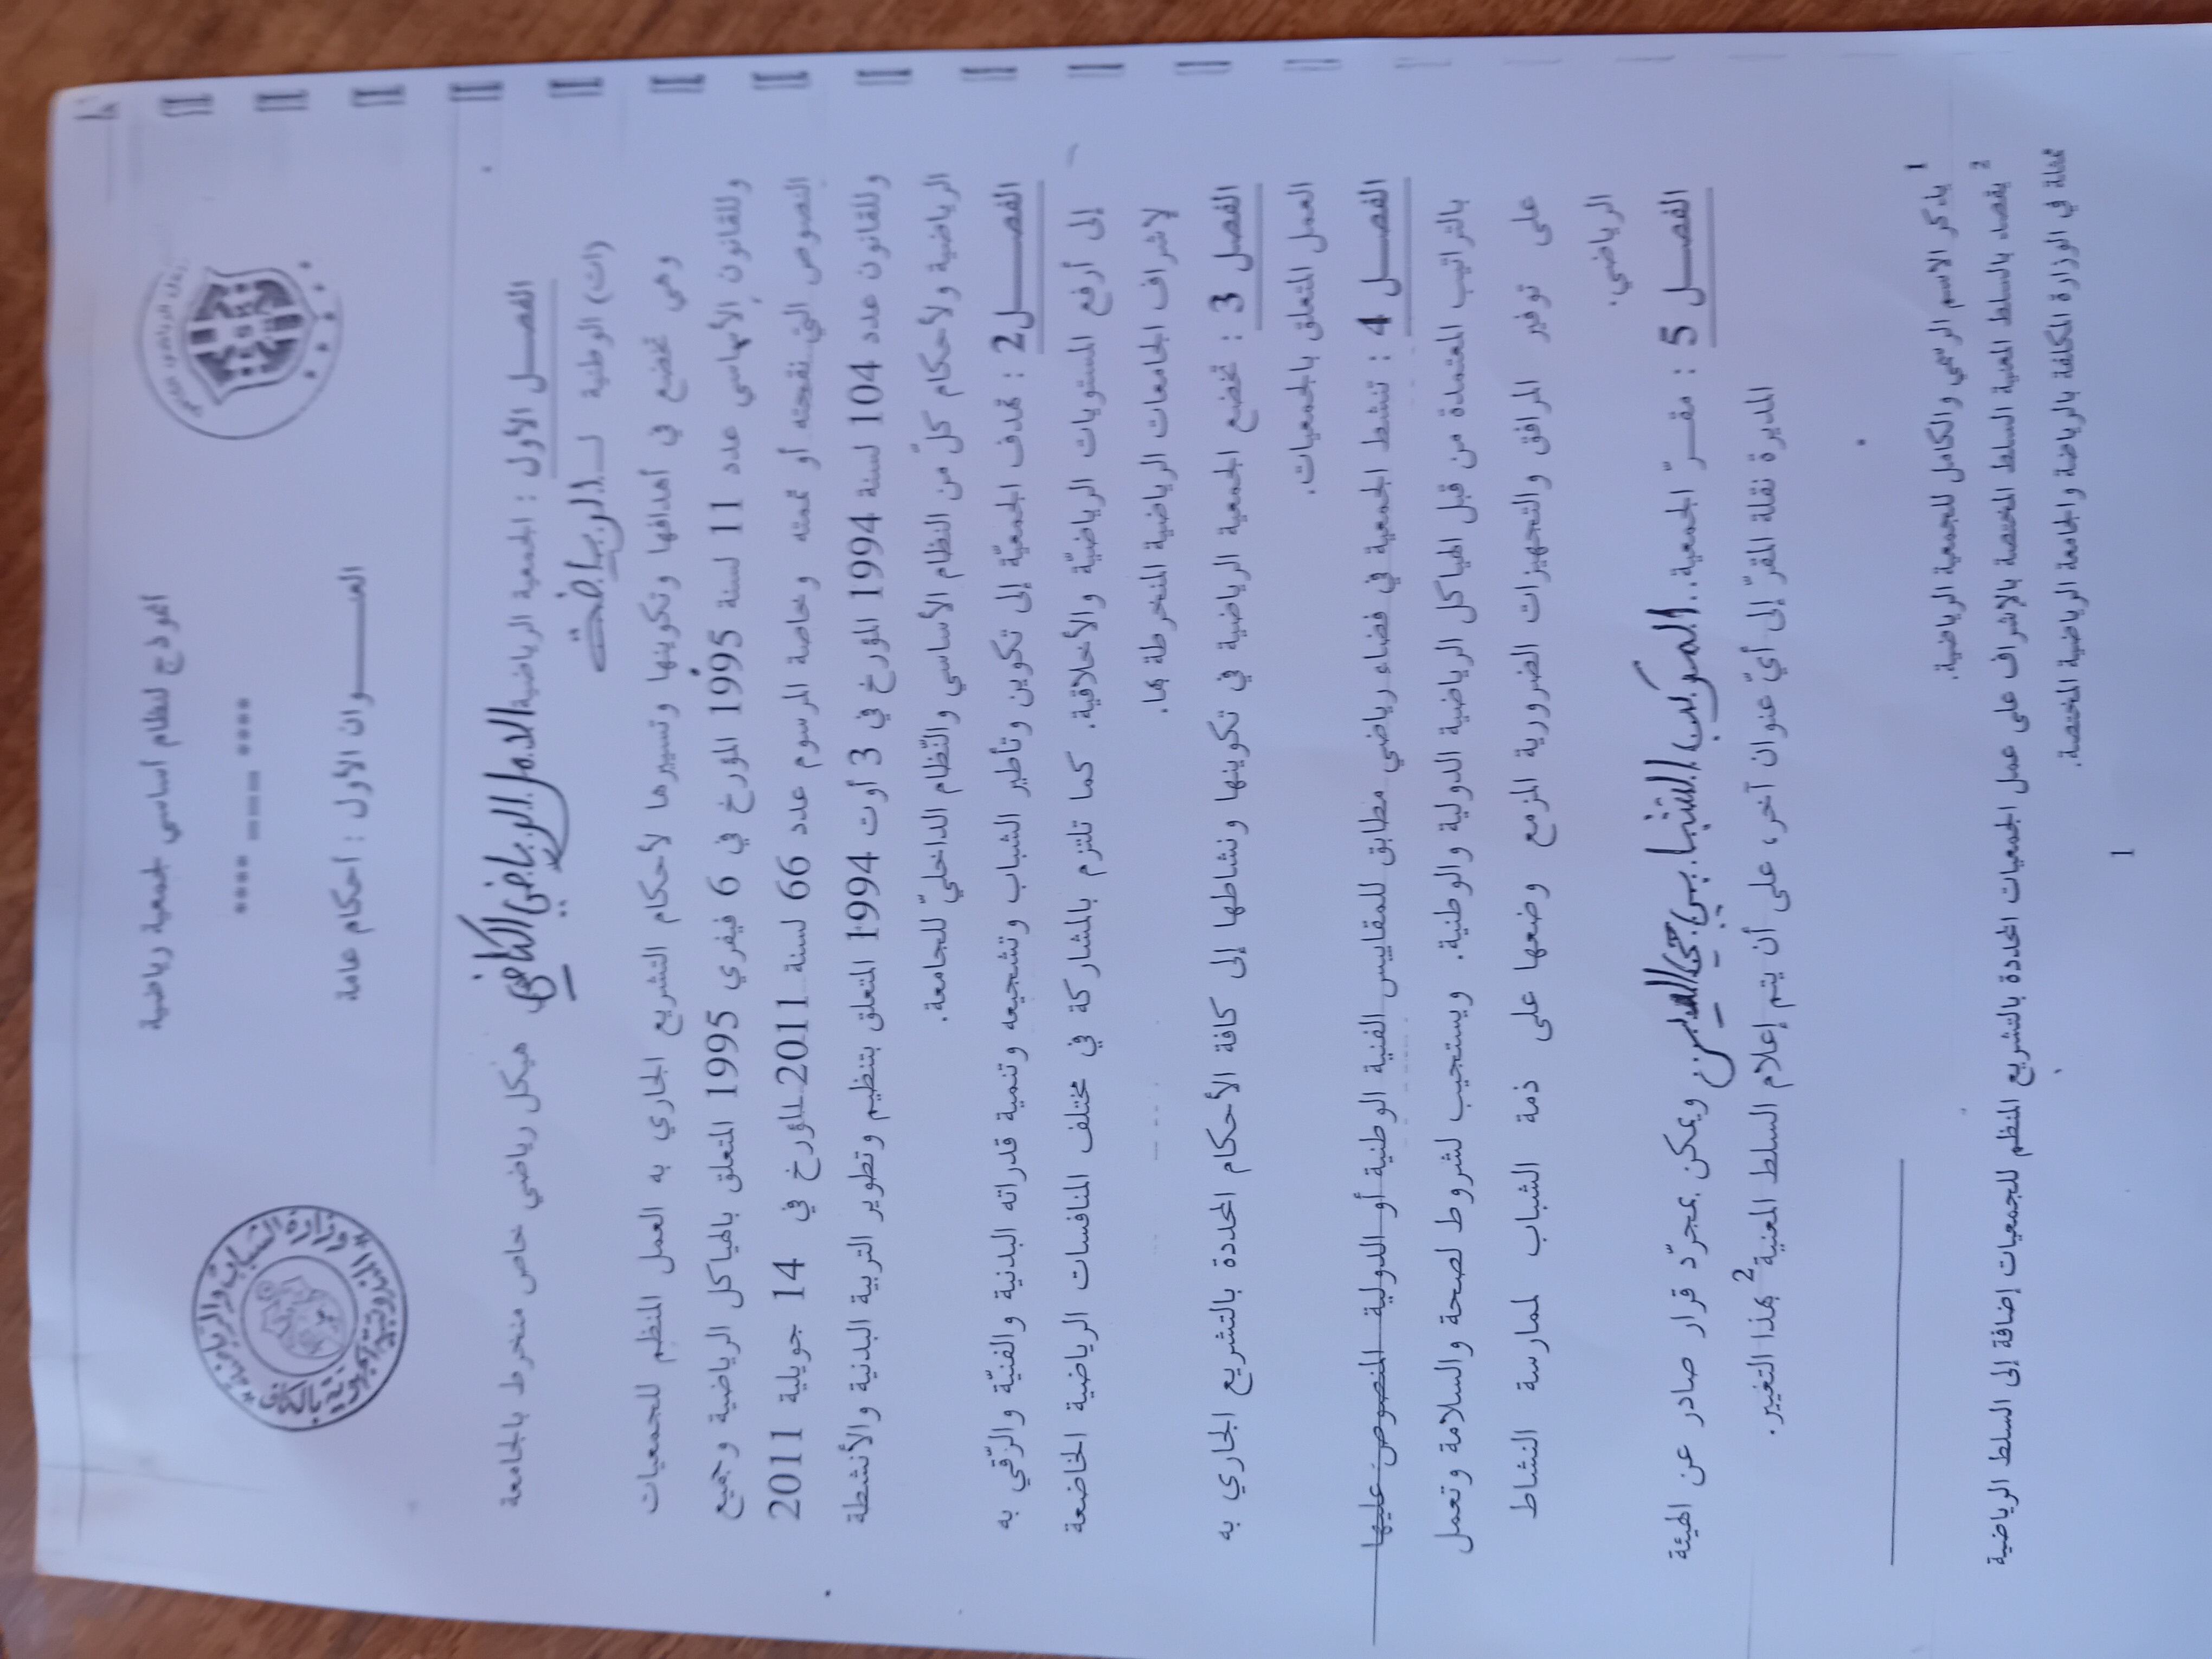 أنموذج لنظام أساسي لجمعية رياضية
**** ــــ ****
العنـــــــوان الأول : أحكام عامة
الفصــل الأول : الجمعية الرياضية الامل الرياضي هيكل رياضي خاص منخرط بالجامعة
(ات) الوطنية لـ
وهي تخضع في أهدافها وتكوينها وتسييرها لأحكام التشريع الجاري به العمل المنظم للجمعيات
وللقانون الأساسي عدد 11 لسنة 1995 المؤرخ في 6 فيفري 1995 المتعلق بالهياكل الرياضية وجميع
النصوص التي نقحته أو تممته وخاصة المرسوم عدد 66 لسنة 2011 المؤرخ في 14 جويلية 2011
وللقانون عدد 104 لسنة 1994 المؤرخ في 3 أوت 1994 المتعلق بتنظيم وتطوير التربية البدنية والأنشطة
الرياضية ولأحكام كلّ من النظام الأساسي والنّظام الداخليّ للجامعة.
الفصــــل2 : تهدف الجمعيّة إلى تكوين وتأطير الشباب وتشجيعه وتنمية قدراته البدنية والفنيّة والرّقي به
إلى أرفع المستويات الرياضيّة والأخلاقية. كما تلتزم بالمشاركة في مختلف المنافسات الرياضية الخاضعة
لإشراف الجامعات الرياضية المنخرطة بها.
الفصل 3 : تخضع الجمعية الرياضية في تكوينها ونشاطها إلى كافة الأحكام المحددة بالتشريع الجاري به
العمل المتعلق بالجمعيات.
الفصــل 4 : تنشط الجمعية في فضاء رياضي مطابق للمقاييس الفنية الوطنية أو الدولية المنصوص عليها
بالتراتيب المعتمدة من قبل الهياكل الرياضية الدولية والوطنية. ويستجيب لشروط لصحة والسلامة وتعمل
على توفير المرافق والتجهيزات الضرورية المزمع وضعها على ذمة الشباب لممارسة النشاط
الرياضي.
الفصــل 5 : مقـــرّ الجمعية.. المركب الشبابي ويمكن بمجرّد قرار صادر عن الهيئة
المديرة نقلة المقرّ إلى أيّ عنوان آخر، على أن يتم إعلام السلط المعنية2 بهذا التغيير.
1 يذكر الاسم الرسمي والكامل للجمعية الرياضية.
2 يقصد بالسلط المعنية السلط المختصة بالإشراف على عمل الجمعيات المحددة بالتشريع المنظم للجمعيات إضافة إلى السلط الرياضية
ممثلة في الوزارة المكلفة بالرياضة والجامعة الرياضية المختصة.
1